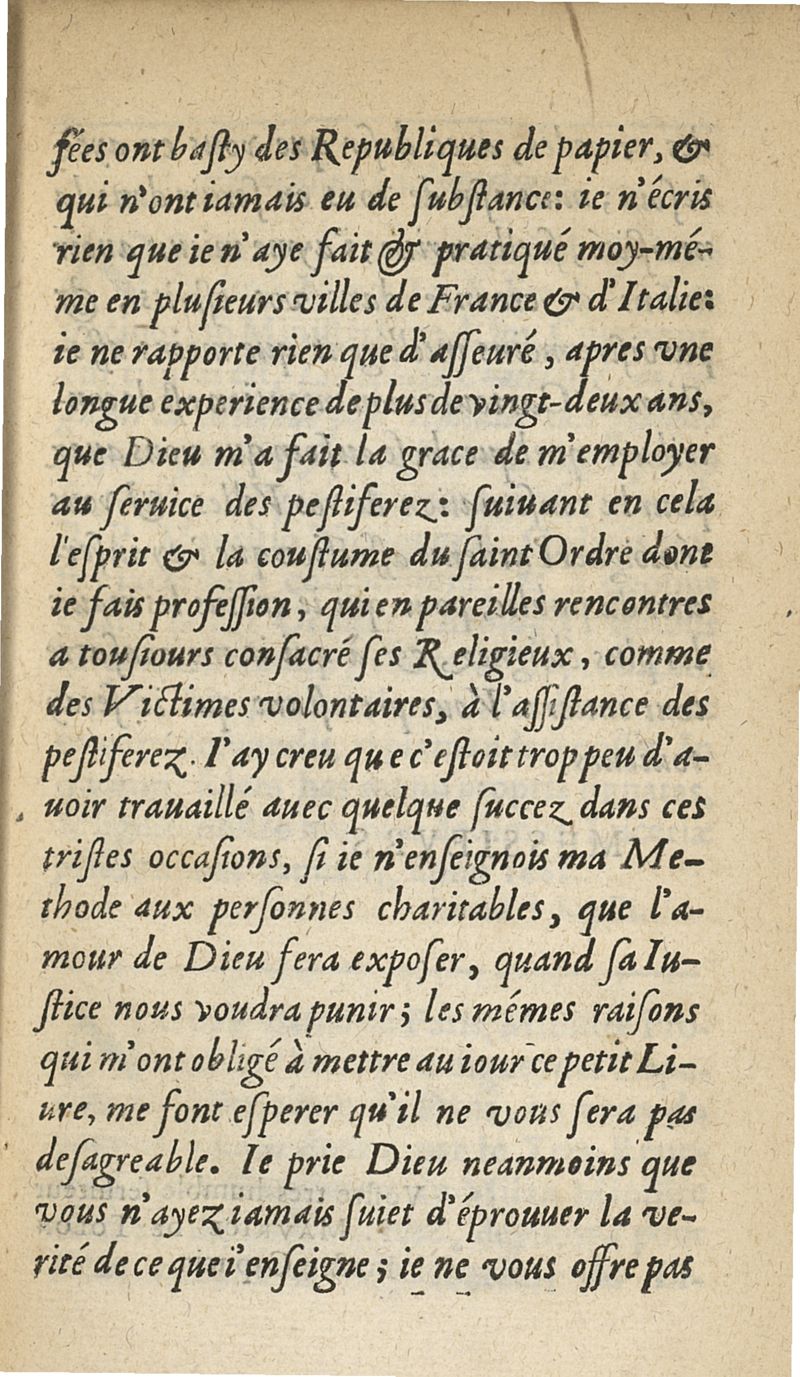 ſées ont baſty des Republiques de papier, &
qui n'ont iamais eu de ſubſtance: ie n'écris
rien que ie n'aye fait & pratiqué moy-mé-
me en pluſieurs villes de France & d'Italie:
ie ne rapporte rien que d'aſſeuré, apres vne
longue experience de plus de vingt-deux ans,
que Dieu m'a fait la grace de m'employer
au ſeruice des peſtiferez: ſuiuant en cela
l'eſprit & la couſtume du ſaint Ordre dont
ie fais profeſſion, qui en pareilles rencontres
a touſiours conſacré ſes Religieux, comme
des Victimes volontaires, à l'aſſiſtance des
peſtiferez. I'ay creu que c'eſtoit trop peu d'a-
uoir trauaillé auec quelque ſuccez dans ces
triſtes occaſions, ſi ie n'enſeignois ma Me-
thode aux perſonnes charitables, que l'a-
mour de Dieu fera expoſer, quand ſa Iu-
ſtice nous voudra punir; les mémes raiſons
qui m'ont obligé à mettre au iour ce petit Li-
ure, me font eſperer qu'il ne vous ſera pas
deſagreable. Ie prie Dieu neanmoins que
vous n'ayez iamais ſuiet d'éprouuer la ve-
rité de ce que i'enſeigne; ie ne vous offre pas